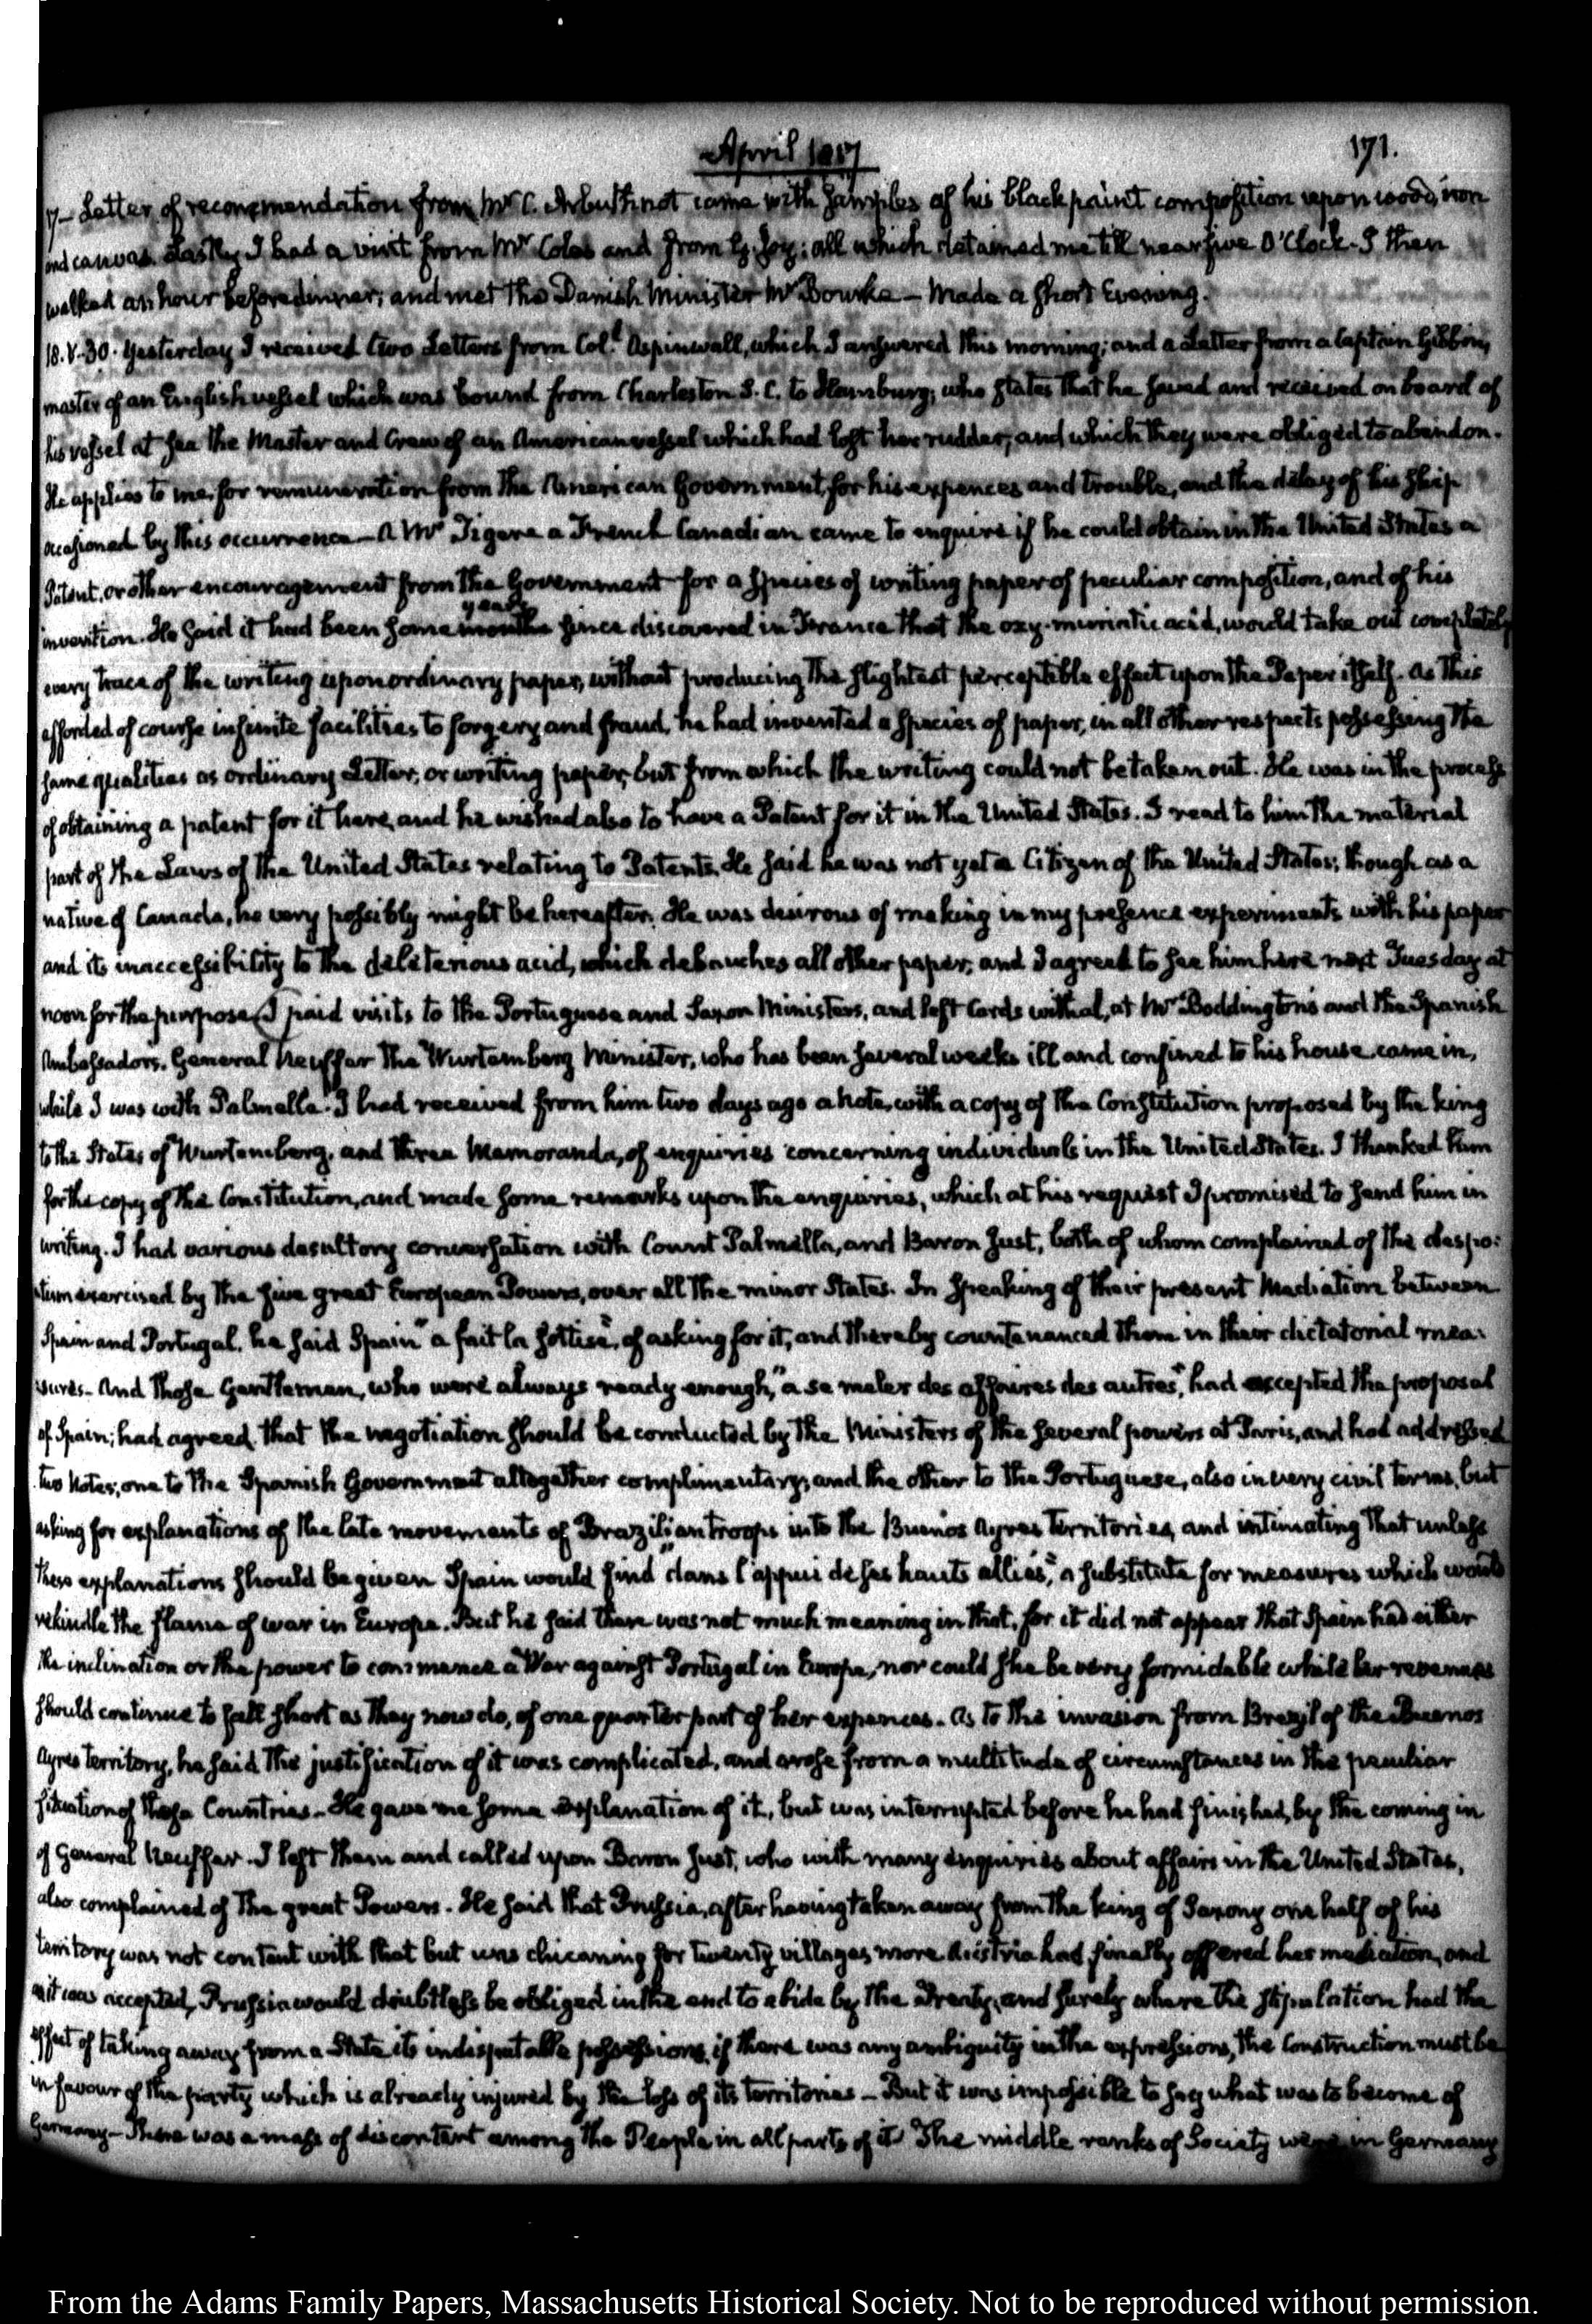 April 1817
171.
17– Letter of recommendation from Mr C. Arbuthnot came with samples of his black paint composition upon wood, iron
and canvas. Lastly I had a visit from Mr Coles and from G. Joy: all which detained me till near five O'Clock. I then
walked an hour before dinner; and met the Danish Minister Mr Bourke – Made a short Evening.
18. V. 30. Yesterday I received two Letters from Coll. Aspinwall, which I answered this morning; and a Letter from a Captain Gibbon,
master of an English vessel which was bound from Charleston S. C. to Hamburg; who states that he saved and received on board of
his vessel at sea the Master and Crew of an American vessel which had lost her rudder, and which they were obliged to abandon.
He applies to me for remuneration from the American Government, for his expences and trouble, and the delay of his ship
occasioned by this occurrence – A Mr Figare a French Canadian came to enquire if he could obtain in the United States a
Patent, or other encouragement from the Government for a species of writing paper of peculiar composition, and of his
years
invention. He said it had been some months since discovered in France that the oxy-muriatic acid, would take out completely
every trace of the writing upon ordinary paper, without producing the slightest perceptible effect upon the Paper itself. As this
afforded of course infinite facilities to forgery and fraud, he had invented a species of paper, in all other respects possessing the
same qualities as ordinary Letter, or writing paper, but from which the writing could not be taken out. He was in the process
of obtaining a patent for it here, and he wished also to have a Patent for it in the United States. I read to him the material
part of the Laws of the United States relating to Patents. He said he was not yet a Citizen of the United States; though as a
native of Canada, he very possibly might be hereafter. He was desirous of making in my presence experiments with his paper
and its inaccessibility to the deleterious acid, which debauches all other paper, and I agreed to see him here next Tuesday at
noon for the purpose. I paid visits to the Portuguese and Saxon Ministers, and left Cards withal, at Mr Boddington's and the Spanish
Ambassadors. General Neuffer the Wurtemberg Minister, who has been several weeks ill and confined to his house came in,
while I was with Palmella. I had received from him two days ago a note, with a copy of the Constitution proposed by the king
to the States of Wurtemberg, and three Memoranda, of enquiries concerning individuals in the United States. I thanked him
for the copy of the Constitution, and made some remarks upon the enquiries, which at his request I promised to send him in
writing. I had various desultory conversation with Count Palmella, and Baron Just, both of whom complained of the despo:
tism exercised by the five great European Powers, over all the minor States. In speaking of their present Mediation between
Spain and Portugal, he said Spain "a fait la sottise", of asking for it, and thereby countenanced them in their dictatorial mea:
sures. And those Gentlemen, who were always ready enough, "a se meler des affaires des autres", had accepted the proposal
of Spain; had agreed that the negotiation should be conducted by the Ministers of the several powers at Paris, and had addressed
two Notes; one to the Spanish Government altogether complimentary; and the other to the Portuguese, also in very civil terms, but
asking for explanations of the late movements of Brazilian troops into the Buenos Ayres Territories, and intimating that unless
these explanations should be given Spain would find "dans l'appui de ses hauts alliés", a substitute for measures which would
rekindle the flame of war in Europe. But he said there was not much meaning in that, for it did not appear that Spain had either
the inclination or the power to commence a War against Portugal in Europe, nor could she be very formidable while her revenues
should continue to fall short as they now do, of one quarter part of her expences. As to the invasion from Brazil of the Buenos
Ayres territory, he said the justification of it was complicated, and arose from a multitude of circumstances in the peculiar
situation of those Countries. He gave me some explanation of it, but was interrupted before he had finished, by the coming in
of General Neuffer. I left them and called upon Baron Just, who with many enquiries about affairs in the United States,
also complained of the great Powers. He said that Prussia, after having taken away from the king of Saxony one half of his
territory was not content with that but was chicaning for twenty villages more. Austria had finally offered her mediation, and
as it was accepted, Prussia would doubtless be obliged in the end to abide by the Treaty, and surely where the stipulation had the
effect of taking away from a State its indisputable possessions, if there was any ambiguity in the expressions, the Construction must be
in favour of the party which is already injured by the loss of its territories – But it was impossible to say what was to become of
Germany – There was a mass of discontent among the People in all parts of it. The middle ranks of Society were in Germany
From the Adams Family Papers, Massachusetts Historical Society. Not to be reproduced without permission.